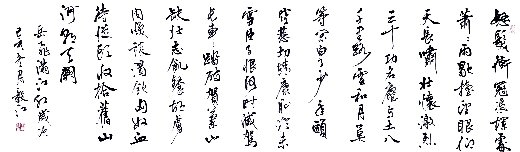 怒髮衝冠憑欄處
瀟瀟雨歇抬望眼仰
天長嘯壯懷激烈
三十功名塵與土八
千里路雲和月莫
等閒白了少年頭
空悲切靖康恥猶未
雪臣子恨何時滅駕
長車踏破賀蘭山
缺壯志飢餐胡虜
肉笑談渴飲匈奴血
待從頭收拾舊山
河朝天闕
岳飛滿江紅